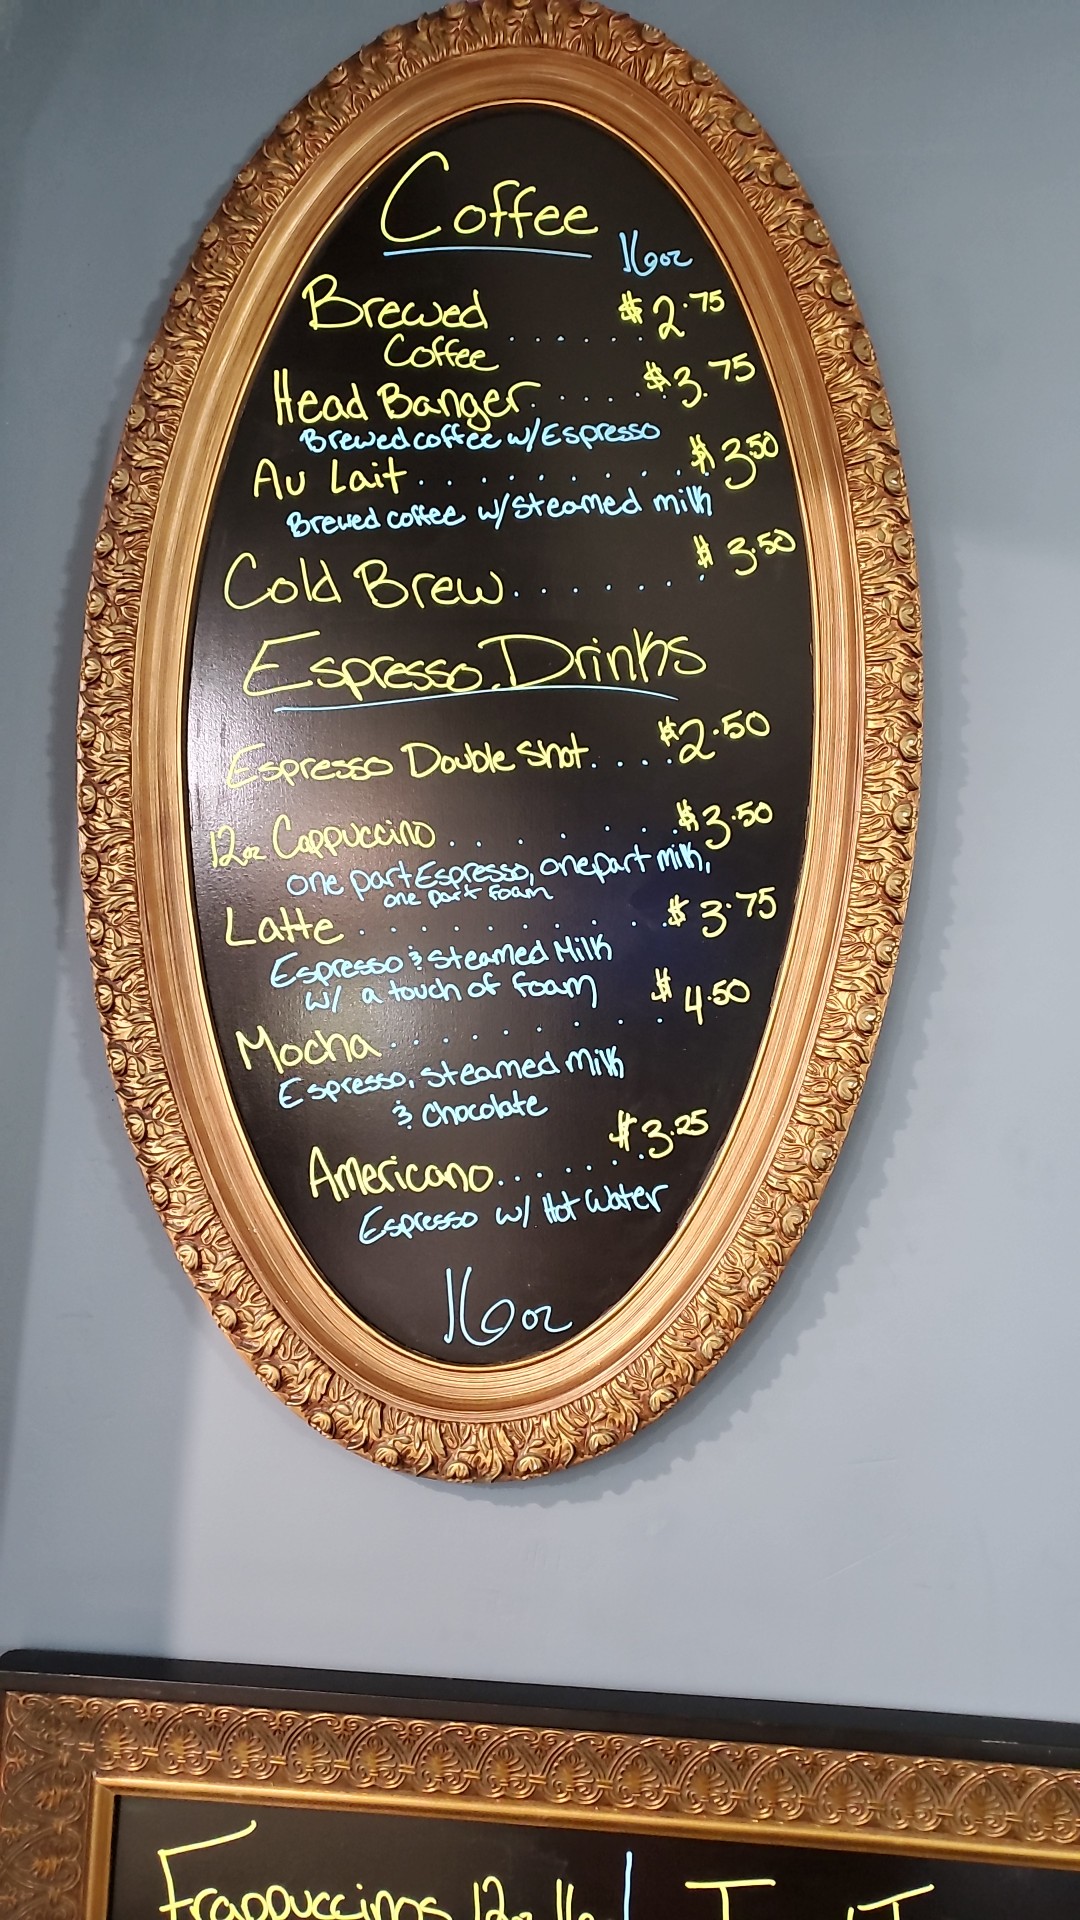 Coffee
16oz
Brewed ...... $2.75
Coffee
Head Banger ...... $3.75
Brewed coffee w/Espresso
Au Lait ......... $3.50
Brewed coffee w/Steamed milk
Cold Brew ....... $3.50
Espresso Drinks
Espresso Double Shot .... $2.50
12oz Cappuccino ....... $3.50
one part Espresso, one part milk,
one part foam
Latte .......... $3.75
Espresso & steamed Milk
w/ a touch of foam
Mocha ........ $4.50
Espresso, steamed Milk
& Chocolate
Americano ....... $3.25
Espresso w/ Hot Water
16oz
Frappuccinos 12oz 16